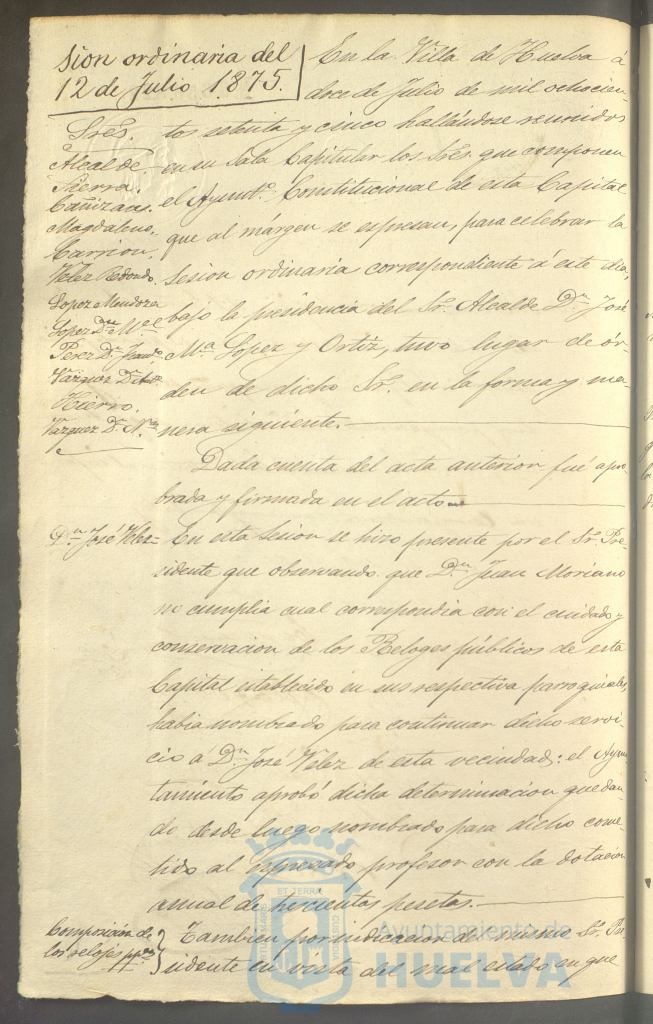 sion ordinaria del
12 de Julio 1875.
Sres.
Alcalde.
Sierra.
Cañizares.
Magdaleno.
Carrion.
Velez Redondo.
Lopez Mendoza
Lopez Dn. Ml.
Perez Dn.
Vazquez Dn.
Hierro.
Vazquez Dn. N.
En la Villa de Huelva á
doce de Julio de mil ochocien-
tos setenta y cinco hallándose reunidos
en su Sala Capitular los Sres. que componen
el Ayuntº. Constitucional de esta Capital
que al márgen se espresan, para celebrar la
sesion ordinaria correspondiente á este dia,
bajo la presidencia del Sr. Alcalde Dn. José
Mª Lopez y Ortiz, tuvo lugar de ór-
den de dicho Sr. en la forma y ma-
nera siguiente.
Dada cuenta del acta anterior fué apro-
bada y firmada en el acto.
Dn. José Velez=
En esta Sesion se hizo presente por el Sr. Pre-
sidente que observando que Dn. Juan Moriano
no cumplia cual correspondia con el cuidado y
conservacion de los Reloges públicos de esta
Capital establecido en sus respectiva parroquiales,
habia nombrado para continuar dicho servi-
cio á Dn. José Velez de esta vecindad: el Ayun-
tamiento aprobó dicha determinacion quedan-
do desde luego nombrado para dicho come-
tido al espresado profesor con la dotacion
anual de pesetas.
Composicion de
los relojes ppcos
Tambien por indicacion del mismo Sr. Pre
sidente en vista del mal estado en que
Ayuntamiento de
HUELVA